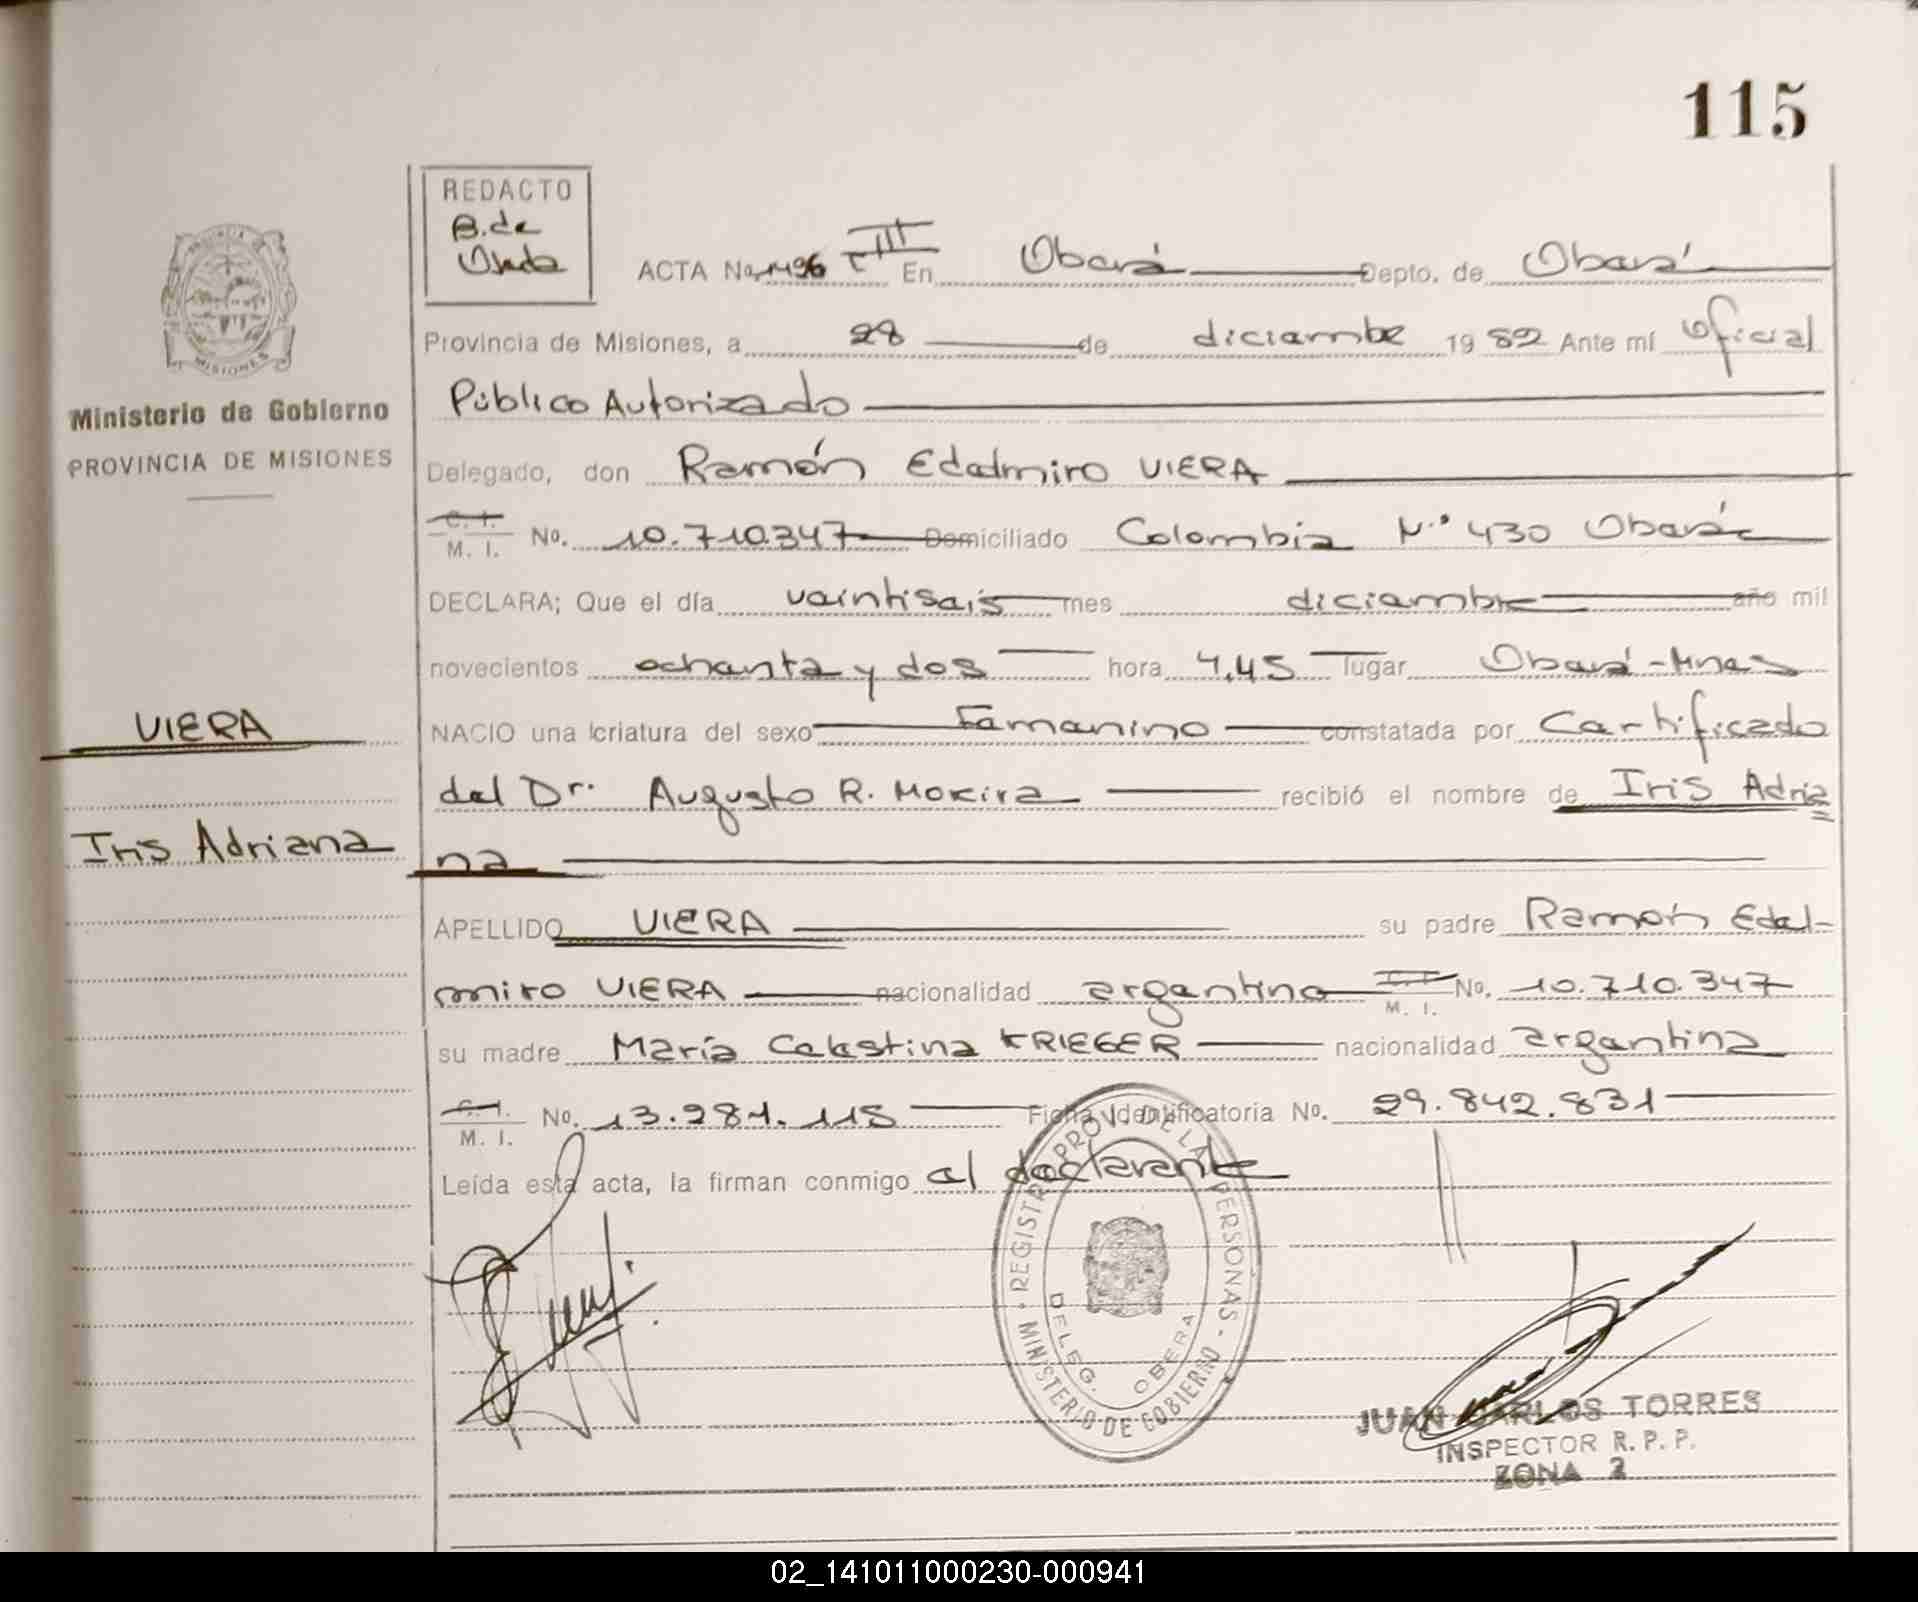 115
REDACTO
B. de
ACTA No. 1496 TIII En Oberá Depto. de Oberá
Provincia de Misiones, a 28 de diciembre 1982 Ante mí Oficial
Público Autorizado
Delegado, don Ramón Edelmiro VIERA
C. I. M. I. No. 10.710.347 Domiciliado Colombia N.º 430 Oberá
DECLARA; Que el día veintiseis mes diciembre año mil
novecientos ochenta y dos hora 4,45 lugar Oberá-Mnes
NACIO una criatura del sexo Femenino constatada por Certificado
del Dr. Augusto R. Moreira recibió el nombre de Iris Adria
na
APELLIDO VIERA su padre Ramón Edel-
miro VIERA nacionalidad argentino C. I. M. I. No. 10.710.347
su madre María Celestina KRIEGER nacionalidad argentina
C. I. M. I. No. 13.281.115 Ficha Identificatoria No. 29.842.831
Leída esta acta, la firman conmigo el declarante
PROVINCIA DE
MISIONES
Ministerio de Gobierno
PROVINCIA DE MISIONES
VIERA
Iris Adriana
REGISTRO PROV. DE LAS PERSONAS - MINISTERIO DE GOBIERNO
DELEG. OBERA
JUAN CARLOS TORRES
INSPECTOR R. P. P.
ZONA 2
02_141011000230-000941